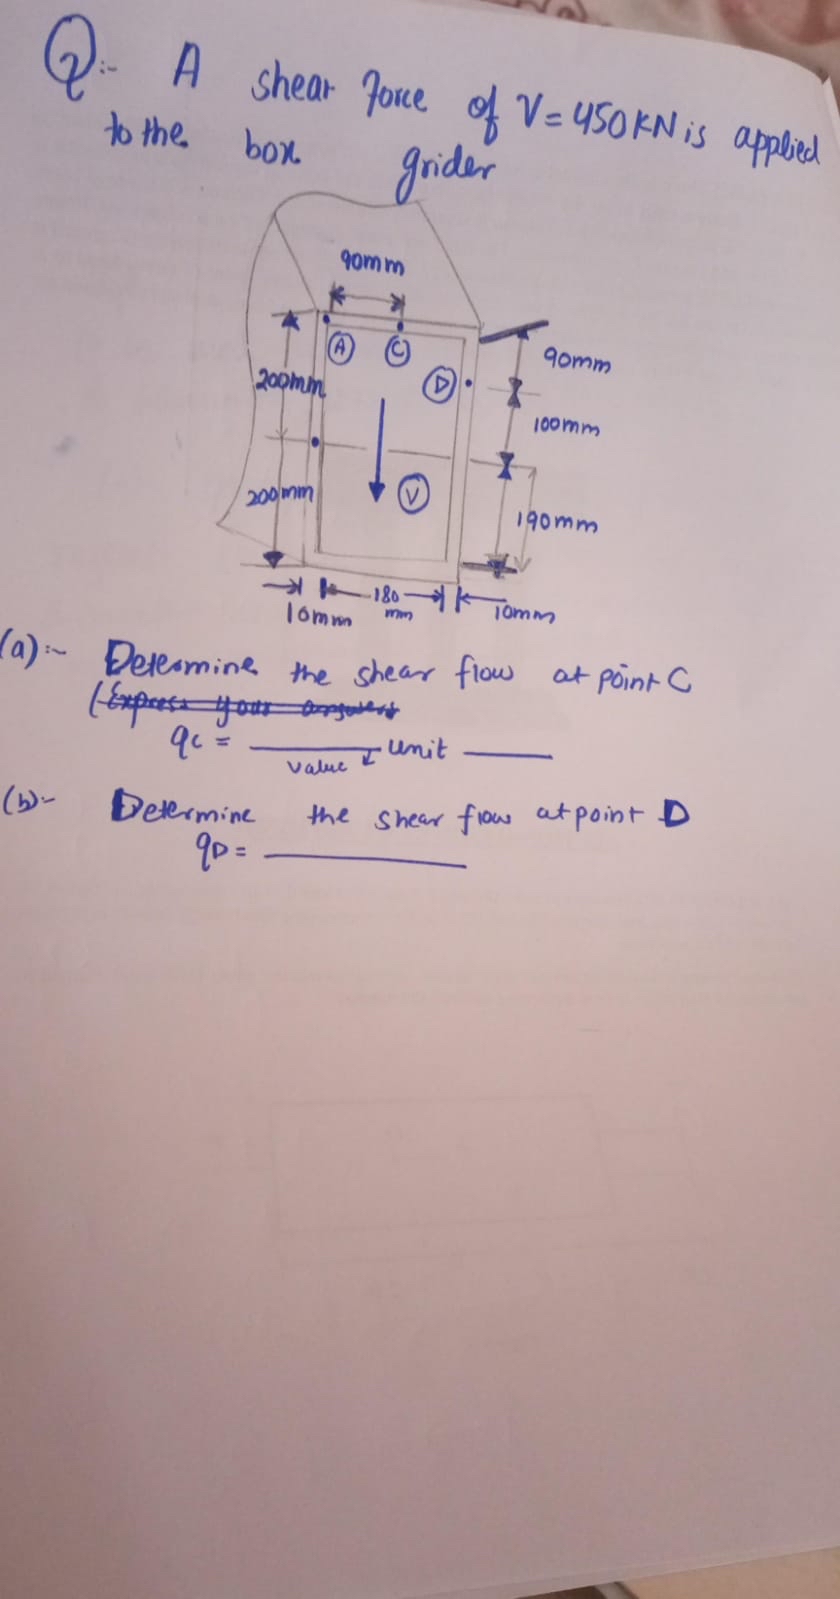 Q:- A shear force of V=450KN is applied
to the box grider
90mm
A
C
D
200mm
90mm
100mm
200mm
V
190mm
10mm
180
mm
10mm
(a):- Determine the shear flow at point C
(Express your answers
qc = ________ unit ____
value
(b):- Determine the shear flow at point D
qD = ________